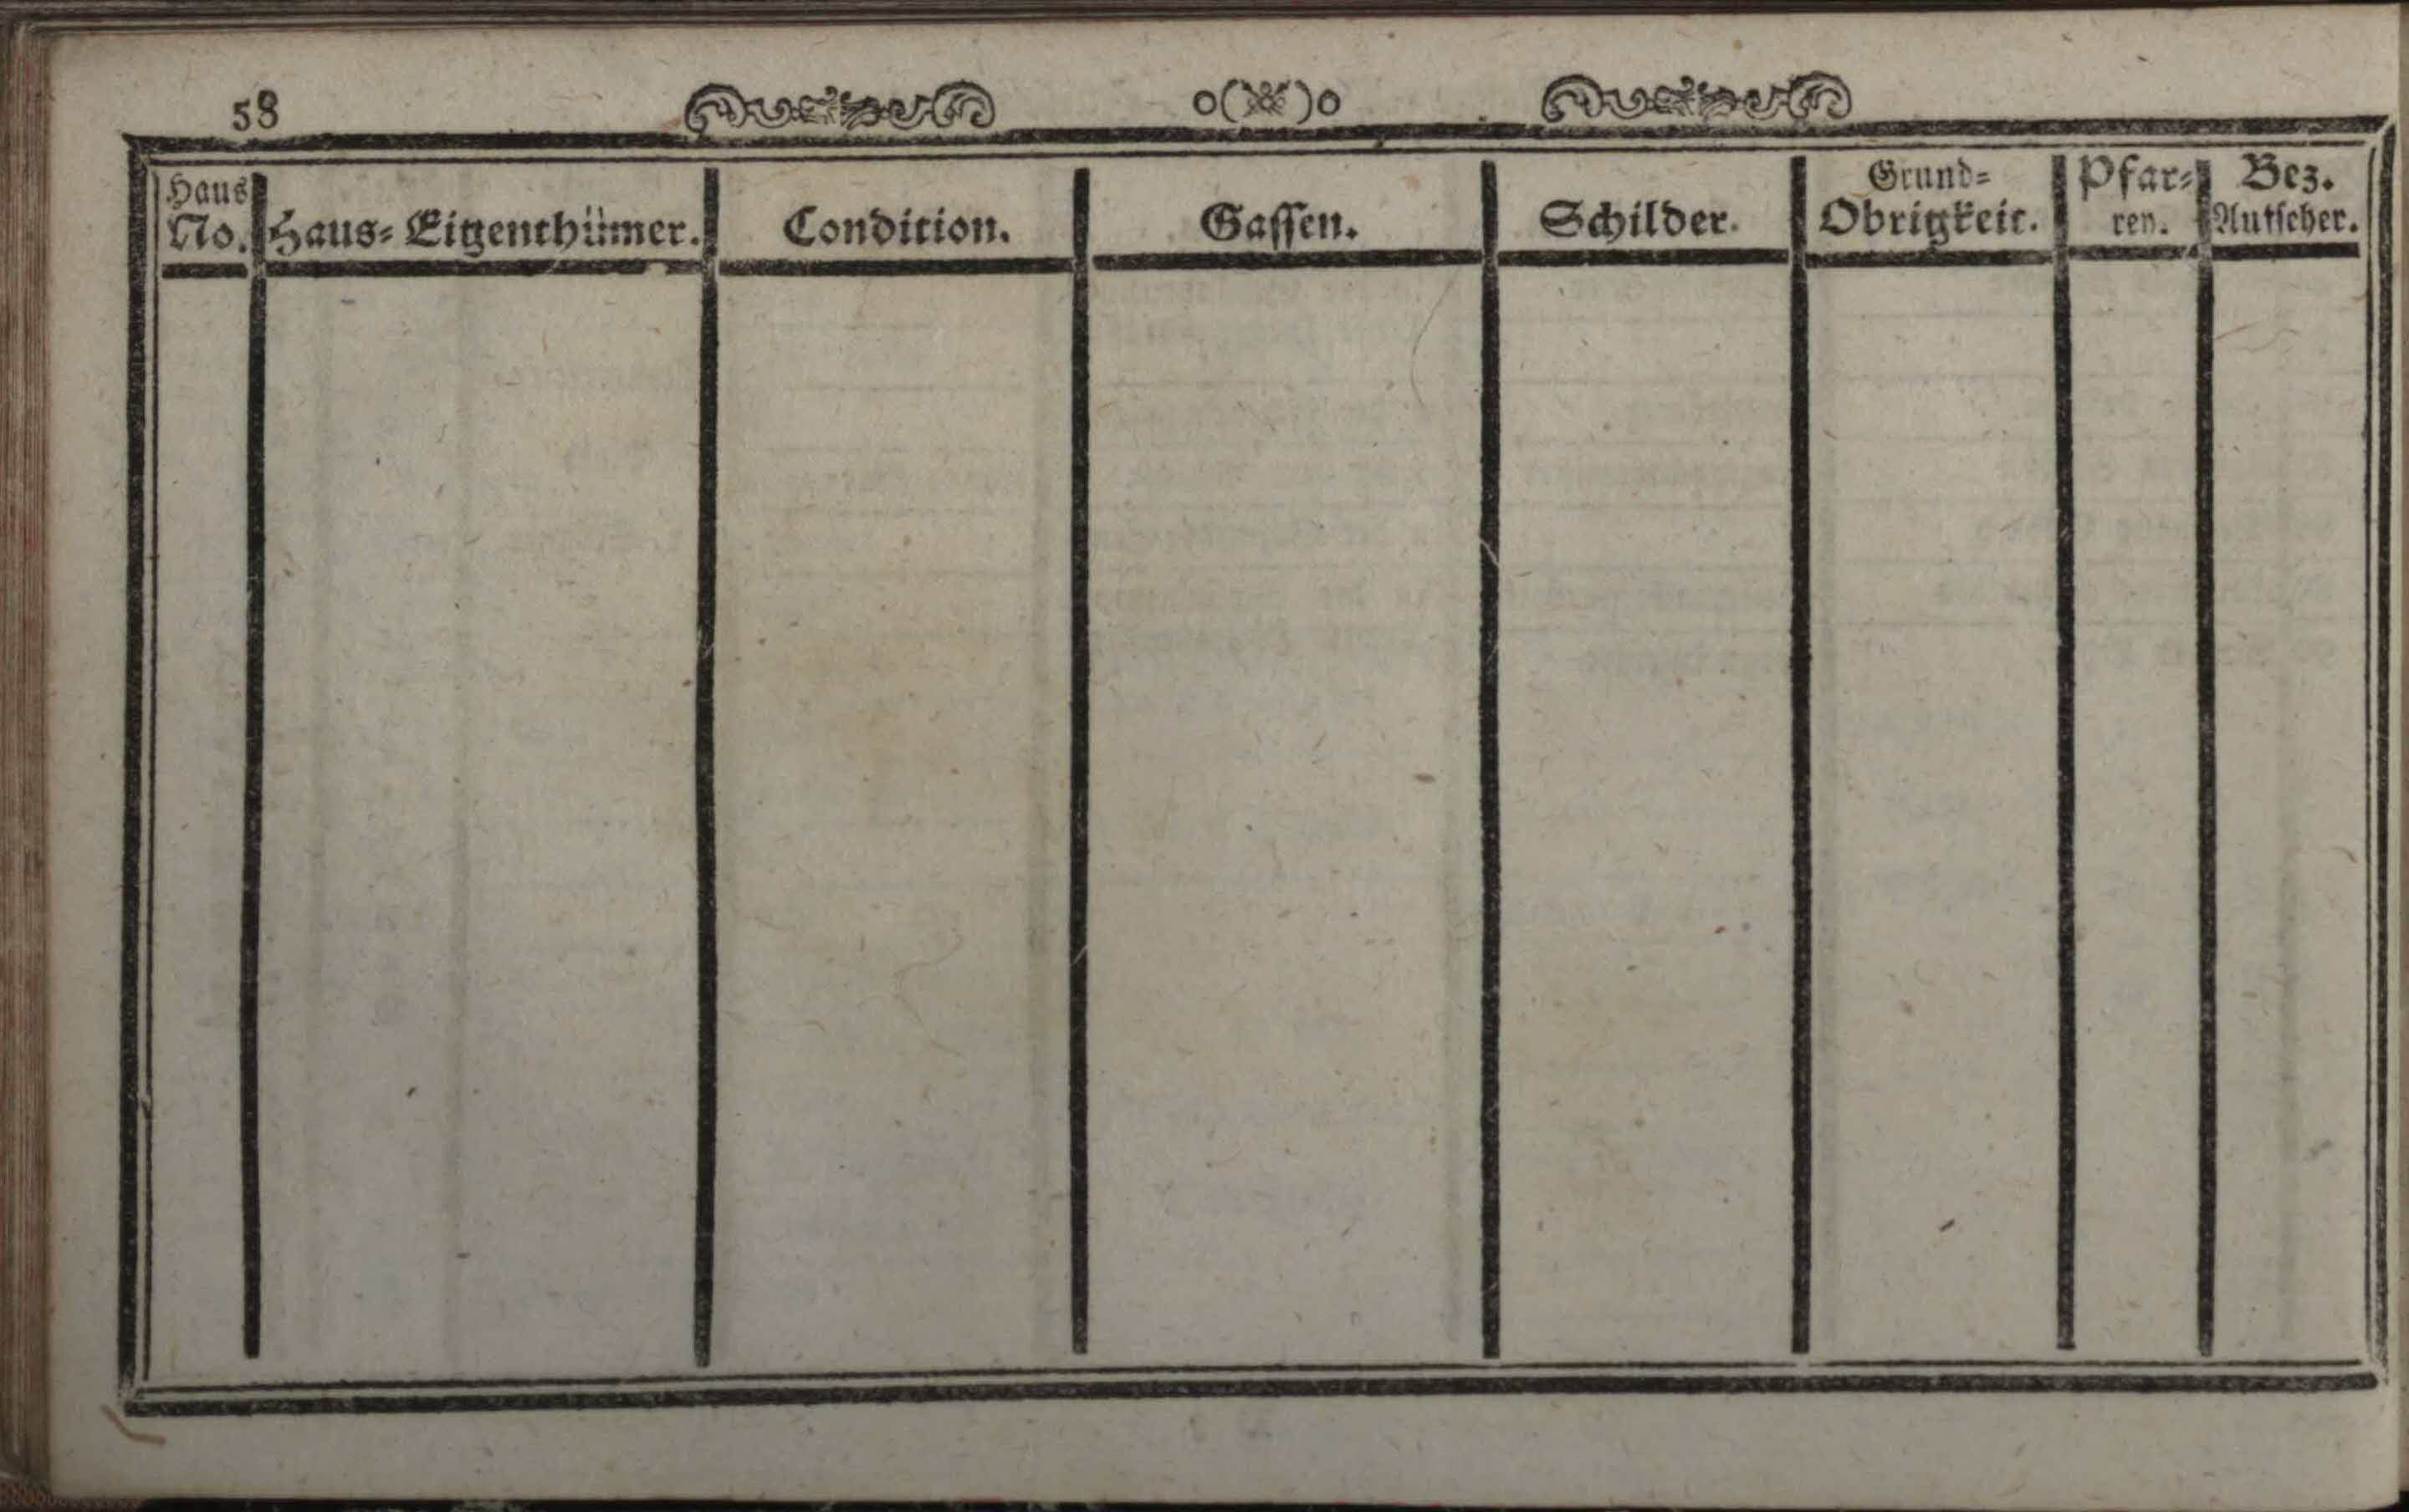 58 o( )o
Haus No. Haus-Eigenthümer. Condition. Gassen. Schilder. Grund-Obrigkeit. Pfar-ren. Bez. Aufseher.